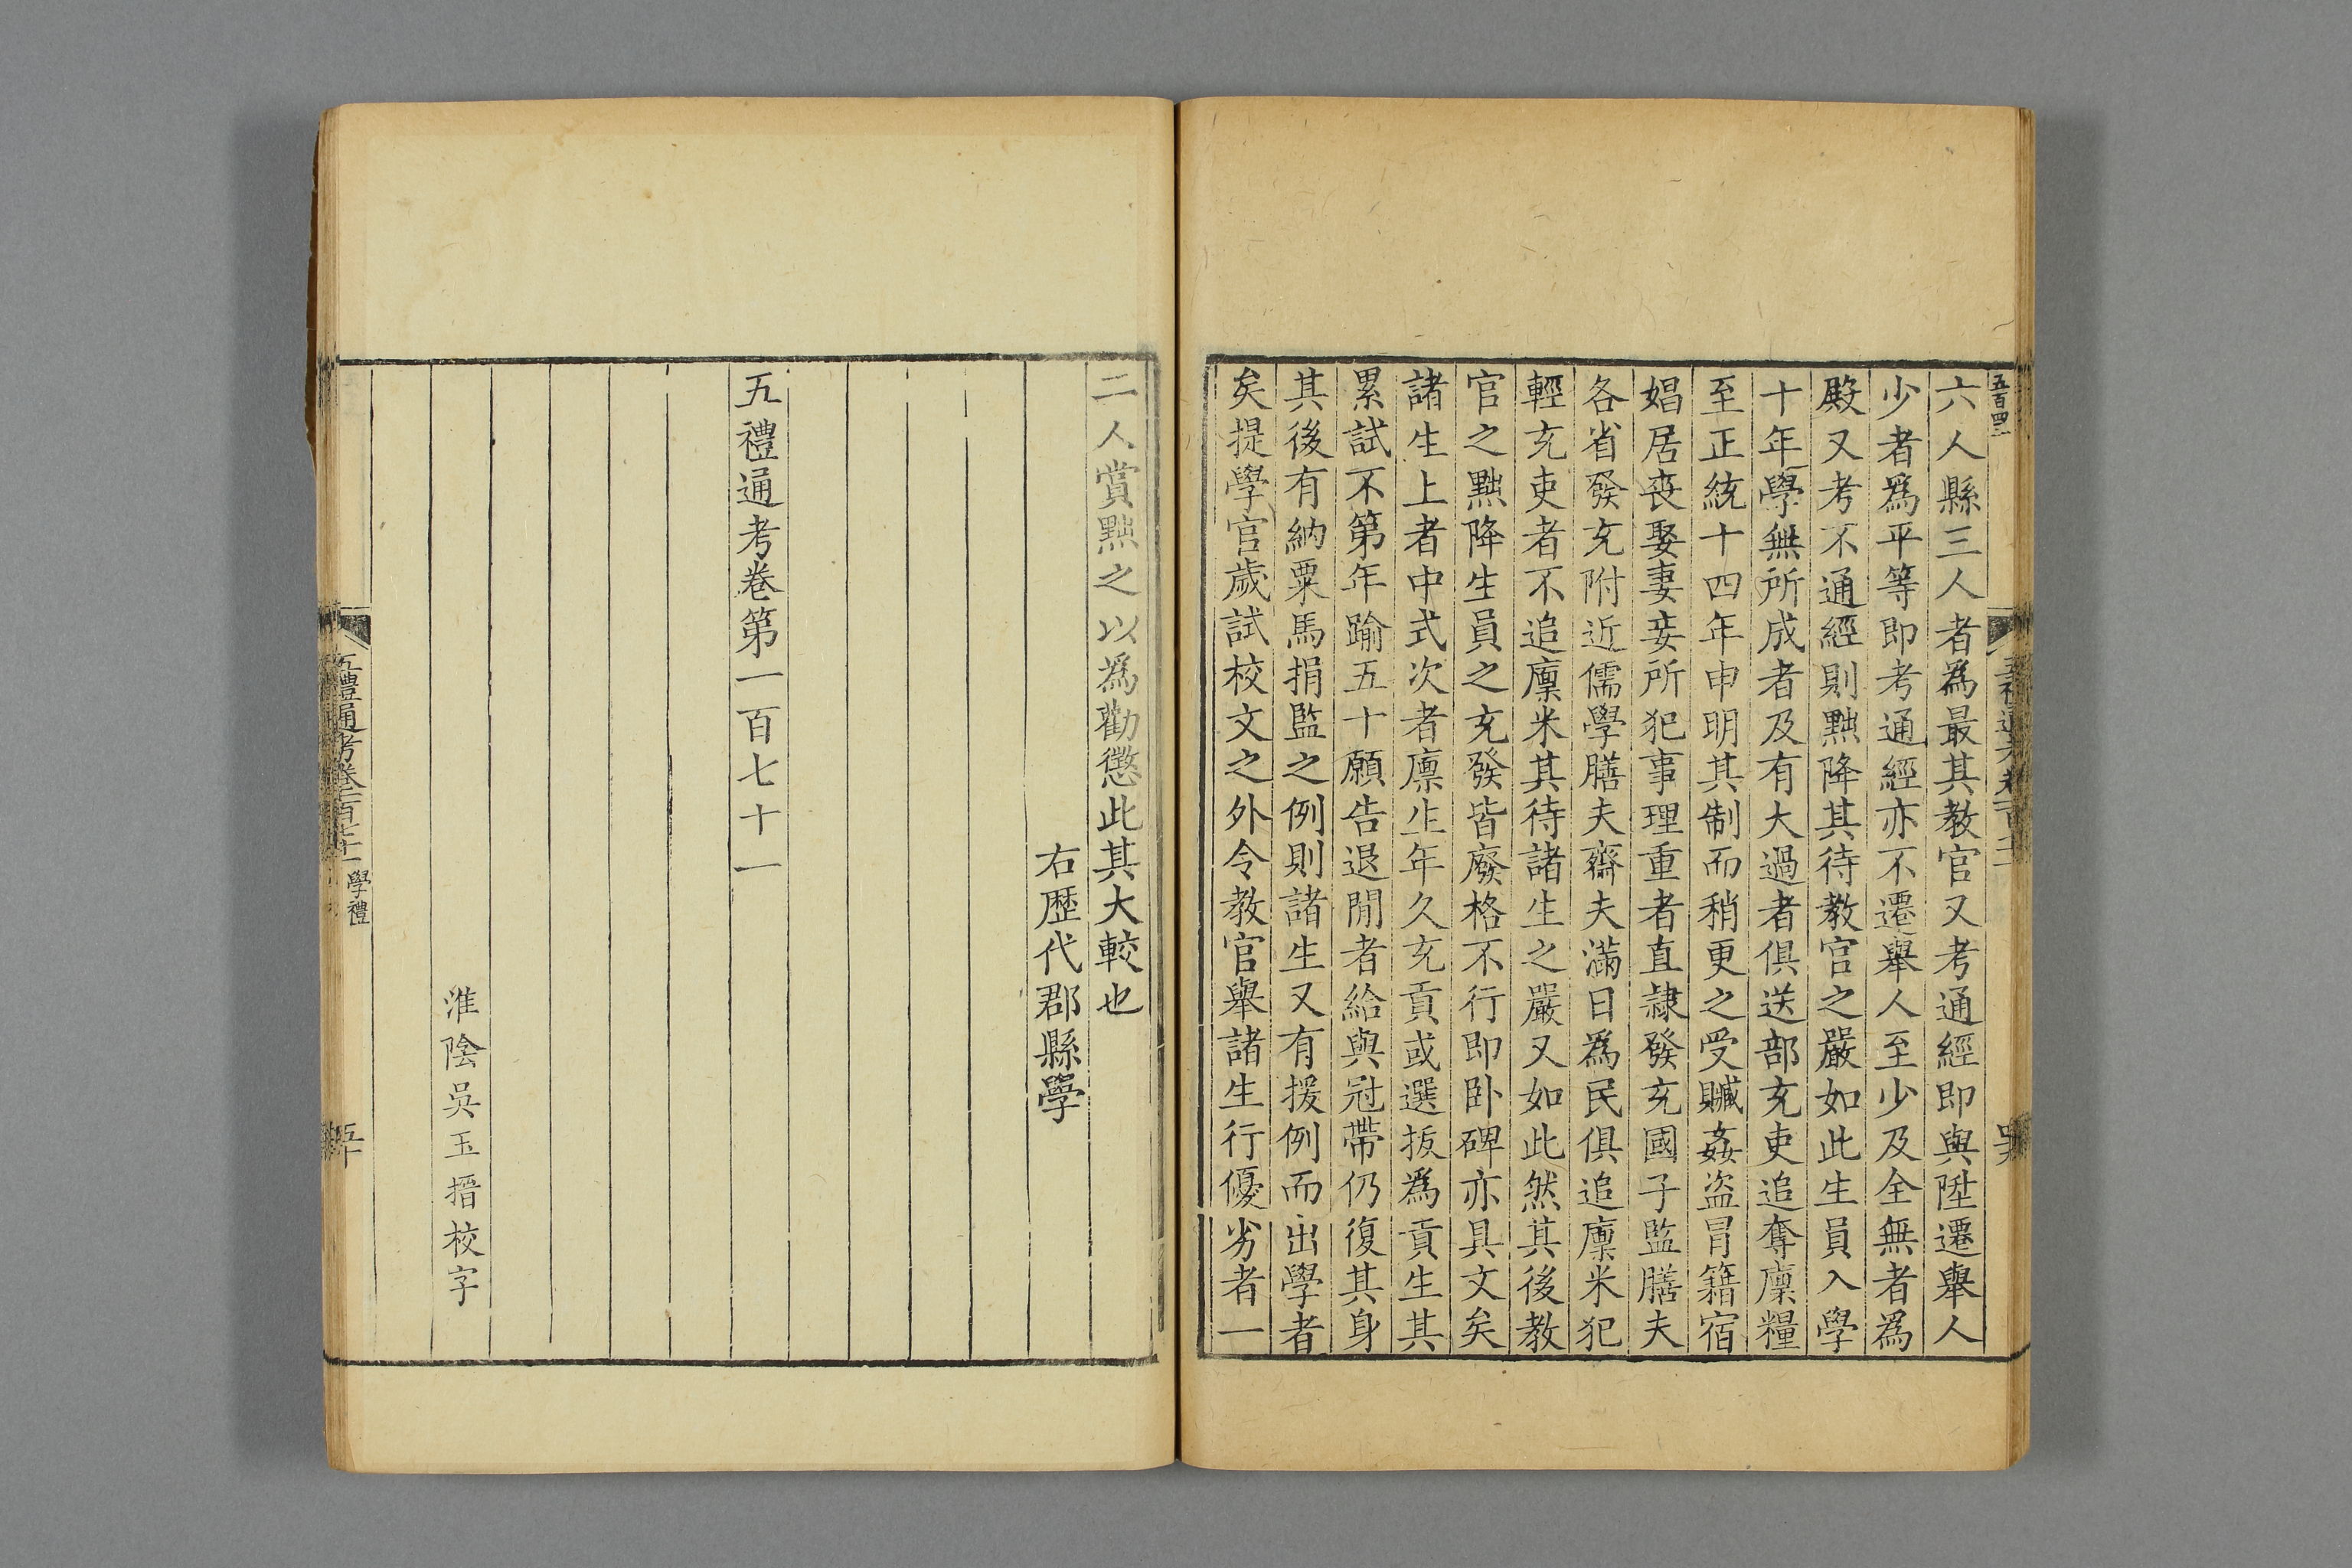 五百四二
六人縣三人者爲最其教官又考通經即與陞遷舉人
少者爲平等即考通經亦不遷舉人至少及全無者爲
殿又考不通經則黜降其待教官之嚴如此生員入學
十年學無所成者及有大過者俱送部充吏追奪廩糧
至正統十四年申明其制而稍更之受贓姦盗冒籍宿
娼居喪娶妻妾所犯事理重者直隷發充國子監膳夫
各省發充附近儒學膳夫齋夫滿日爲民俱追廩米犯
輕充吏者不追廩米其待諸生之嚴又如此然其後教
官之黜降生員之充發皆廢格不行即卧碑亦具文矣
諸生上者中式次者廩生年久充貢或選拔爲貢生其
累試不第年踰五十願告退閒者給與冠帶仍復其身
其後有納粟馬捐監之例則諸生又有援例而出學者
矣提學官歲試校文之外令教官舉諸生行優劣者一
二人賞黜之以爲勸懲此其大較也
右歷代郡縣學
五禮通考卷第一百七十一
淮陰吳玉搢校字
五禮通考卷一百七十一 學禮
五十